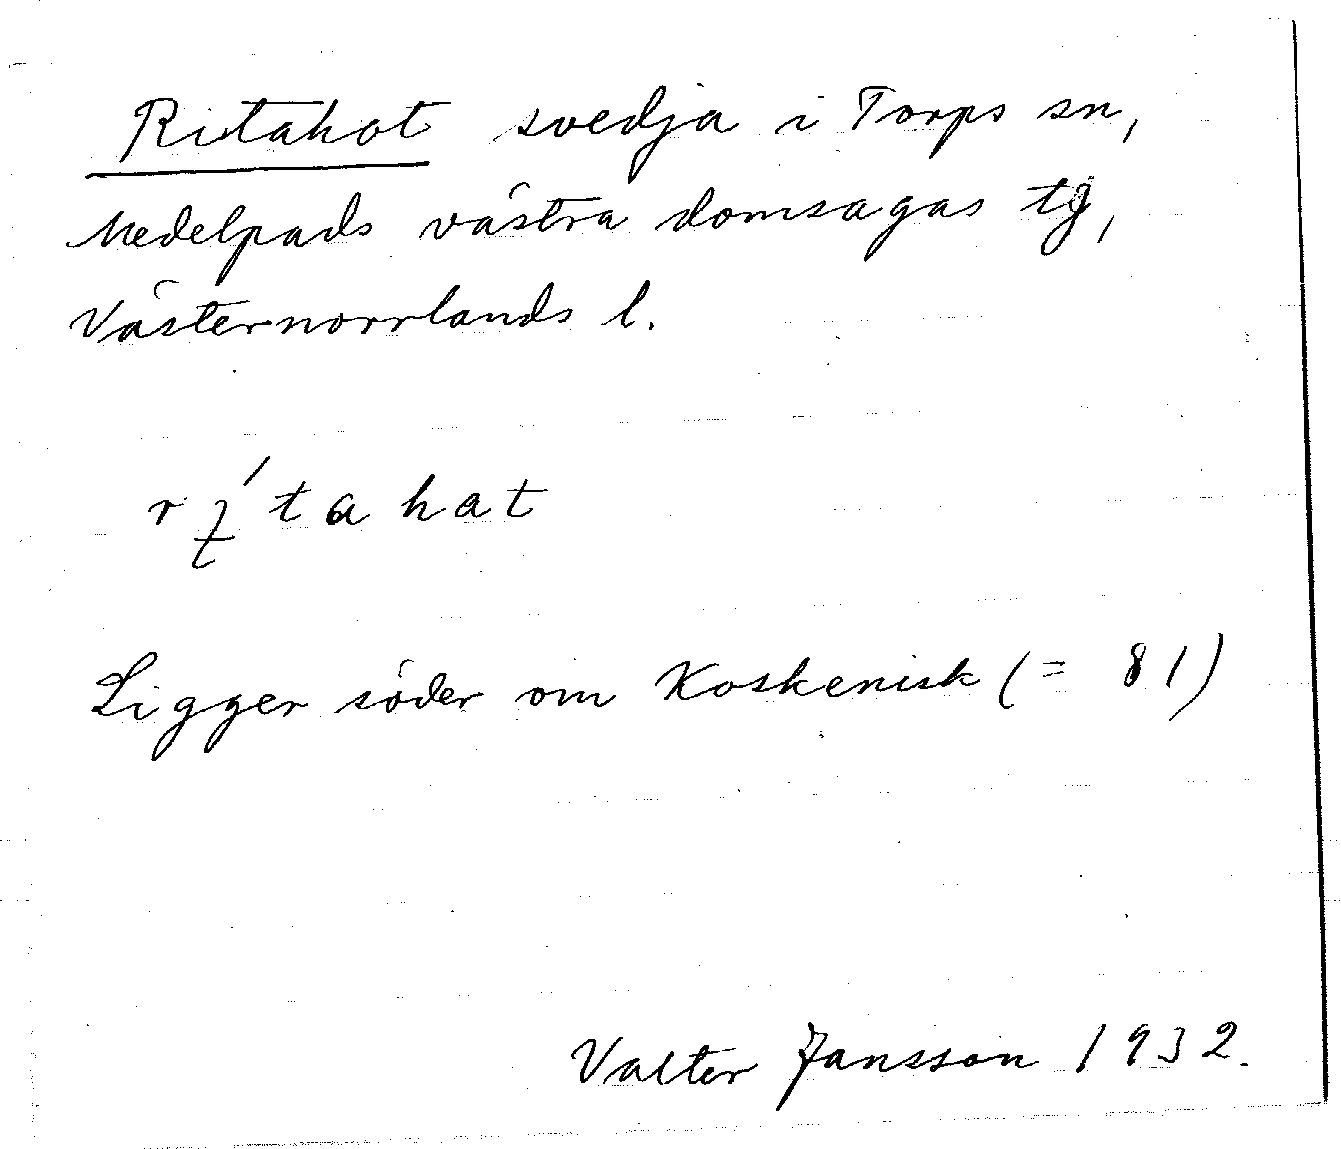 Ritahot svedja i Torps sn,
Medelpads västra domsagas tg,
Västernorrlands l.
Ligger söder om Koskenisk (= 81)
Valter Jansson 1932.